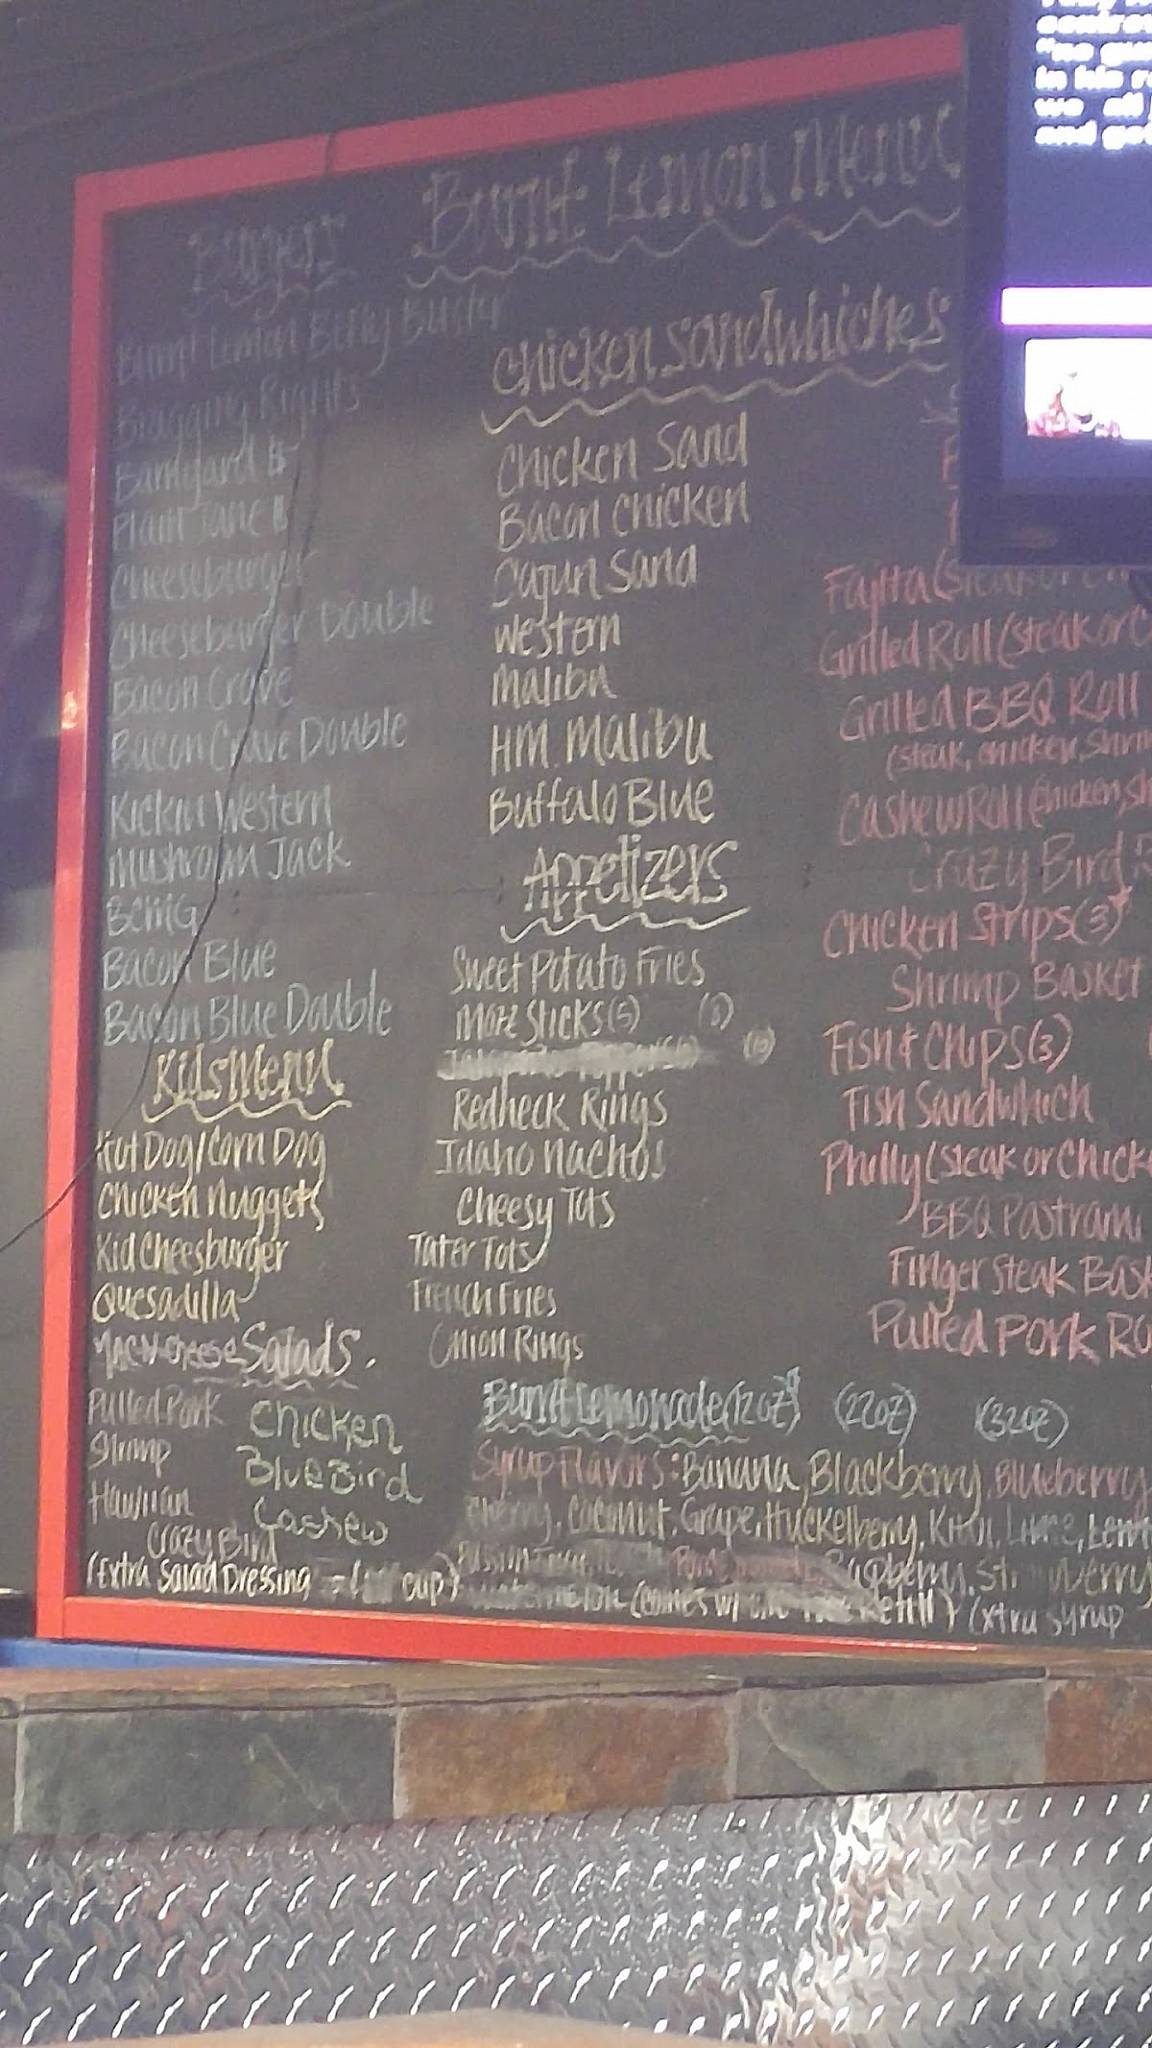 Burnt Lemon Menu
Burgers
Burnt Lemon Belly Buster
Bragging Rights
Barnyard B
Plain Jane B
Cheeseburger
Cheeseburger Double
Bacon Crave
Bacon Crave Double
Kickin Western
Mushroom Jack
BCMG
Bacon Blue
Bacon Blue Double
Kids Menu
Hot Dog/Corn Dog
Chicken Nuggets
Kid Cheesburger
Quesadilla
Mac N Cheese
Salads
Pulled Pork
Shrimp
Hawiian
Crazy Bird
Chicken
Blue Bird
Cashew
(Extra Salad Dressing cup)
Chicken Sandwhiches
Chicken Sand
Bacon Chicken
Cajun Sand
Western
Malibu
HM Malibu
Buffalo Blue
Appetizers
Sweet Potato Fries
Moze Sticks (5) (8)
(10)
Redneck Rings
Idaho Nachos
Cheesy Tots
Tater Tots
French Fries
Onion Rings
Fajita (steak or
Grilled Roll (steak or C
Grilled BBQ Roll
(steak, chicken, shrim
Cashew Roll (Chicken, sh
Crazy Bird
Chicken Strips (3)
Shrimp Basket
Fish & Chips (3)
Fish Sandwhich
Philly (steak or Chick
BBQ Pastrami
Finger Steak Bask
Pulled Pork Ro
Burnt Lemonade (12oz) (22oz) (32oz)
Syrup Flavors: Banana, Blackberry, Blueberry,
Cherry, Coconut, Grape, Huckelberry, Kiwi, Lime, Lem
Raspberry, Strawberry
Watermelon (comes w/ one refill) Extra Syrup